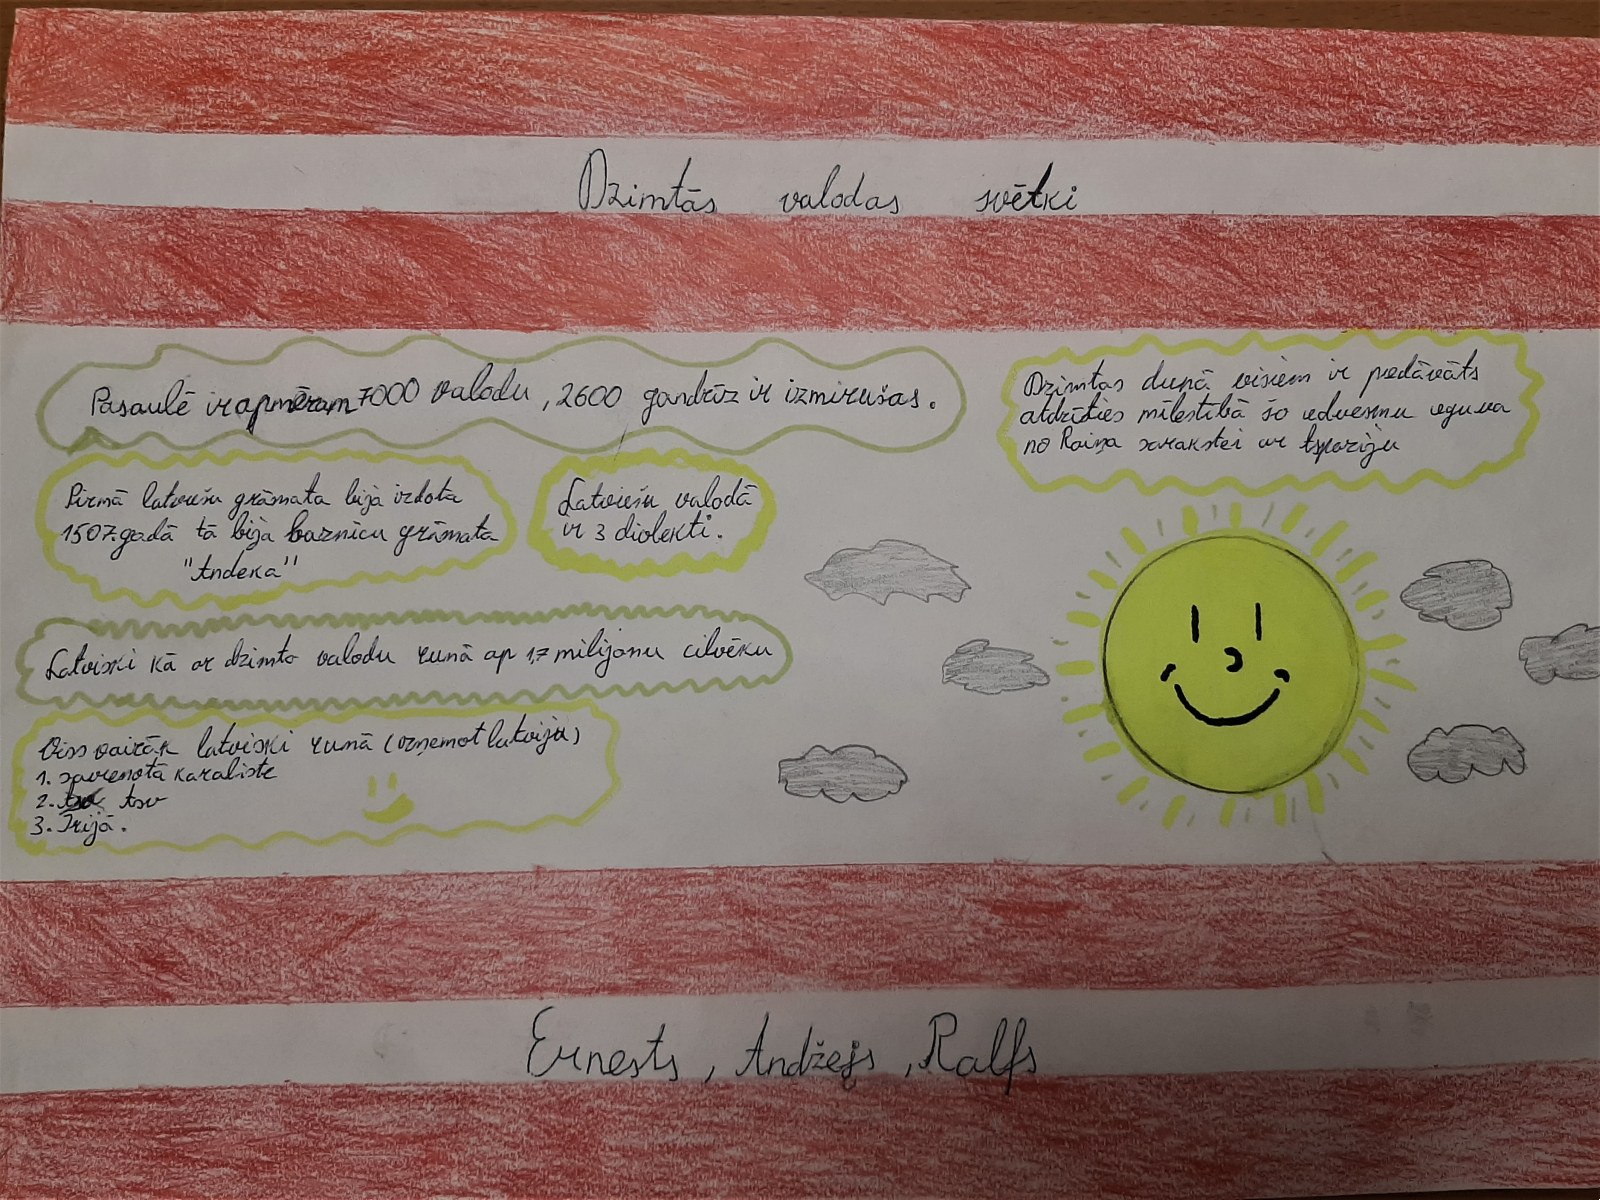 Dzimtās valodas svētki
Pasaulē ir apmēram 7000 valodu, 2600 gandrīz ir izmirušas.
Dzimtas dunā visiem ir piedāvāts
atdzīties mīlestībā šo iedvesmu
no Raiņa sarakstei ar
Pirmā latviešu grāmata bija izdota
1507.gadā tā bija baznīcu grāmata
Latviešu valodā
ir 3 dialekti.
Latviski kā ar dzimto valodu runā ap 1,7 milijonu cilvēku
Viss vairāk latviski runā (izņemot latviju)
1. apvienotā karaliste
2. Asv
3. Īrijā.
Ernests, Andžejs, Ralfs